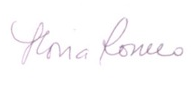 Gloria Romero